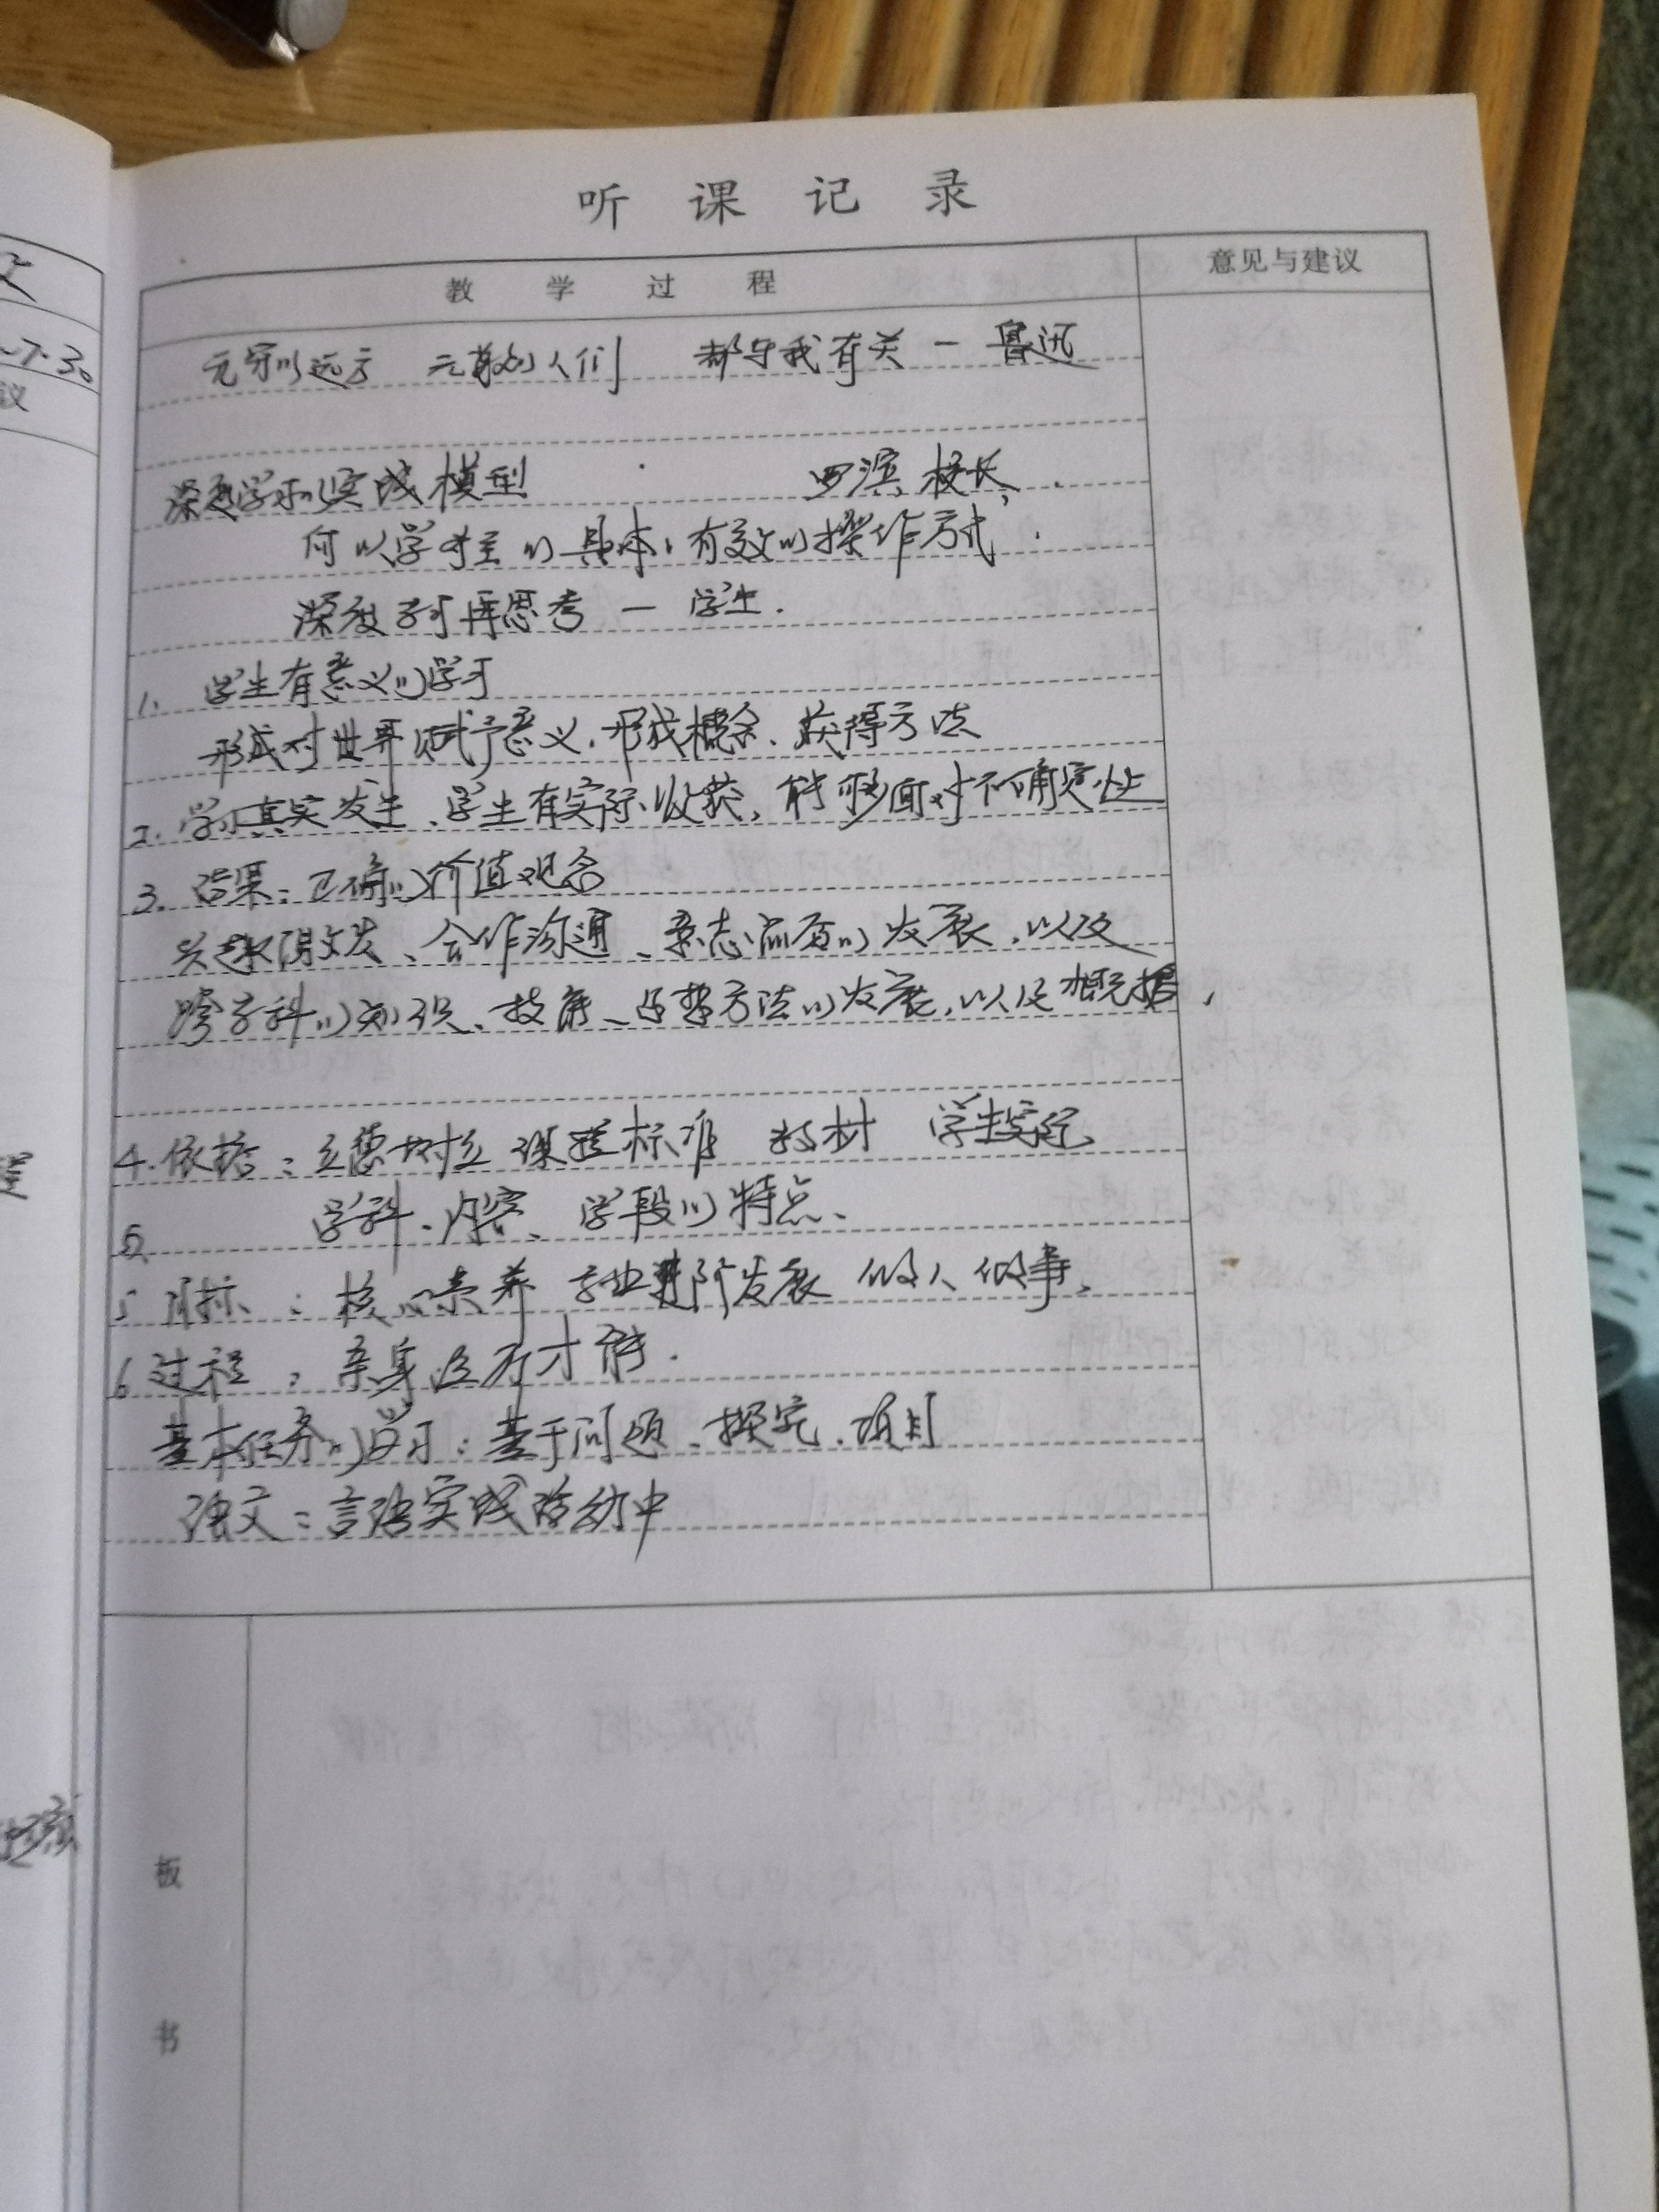 听课记录
教学过程 意见与建议
无穷的远方 无数的人们 都与我有关 — 鲁迅
深度学习的实践模型 罗滨 校长
何以学 的具体、有效的操作方式
深度学习再思考 — 学生.
1. 学生有意义的学习
形成对世界 赋予意义、形成概念、获得方法
2. 学习真实发生、学生有实际收获，能够面对不确定性
3. 结果：正确的价值观念
兴趣激发、合作沟通、 的发展，以及
跨学科的知识、技能、 方法的发展，以及概括，
4. 依据：立德树 课程标准 教材 学生实际
学科、内容、学段的特点、
5 目标：核心素养 专业进阶发展 做人做事、
6 过程：亲身 才能.
基本任务的学习：基于问题、探究、项目
语文：言语实践活动中
板
书
议